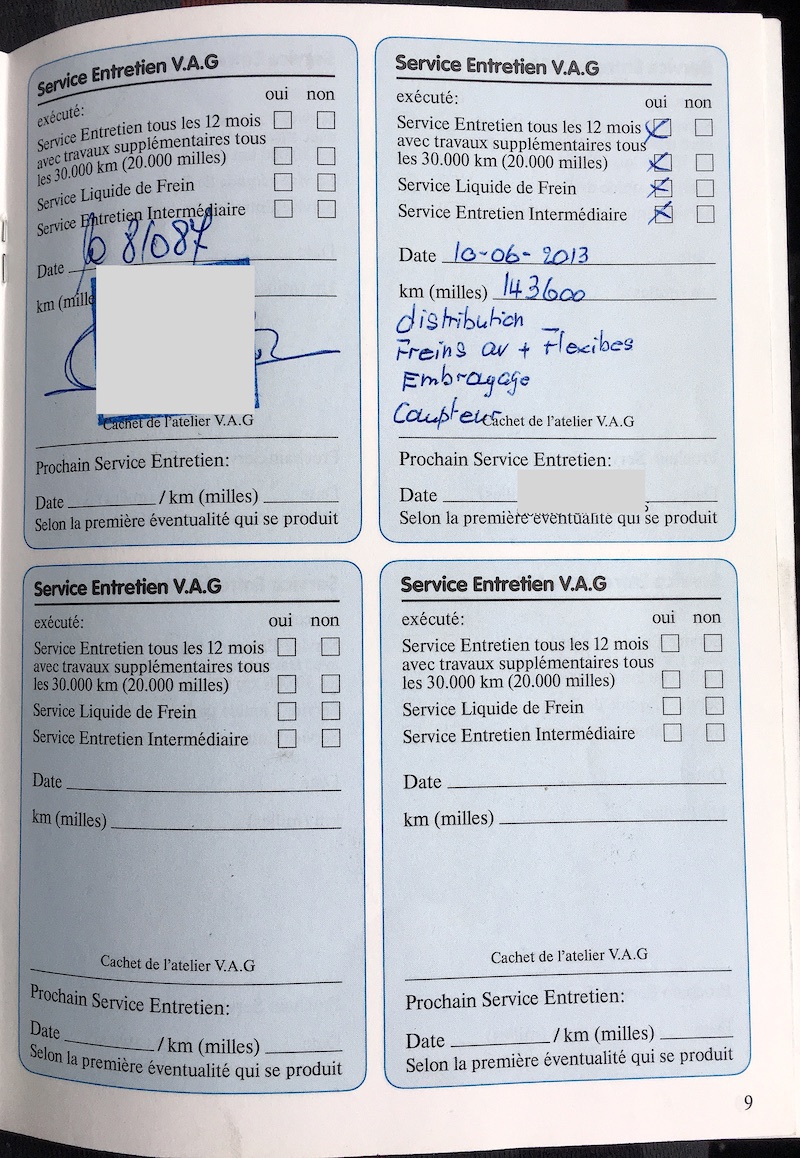 Service Entretien V.A.G
exécuté:
oui non
Service Entretien tous les 12 mois
avec travaux supplémentaires tous
les 30.000 km (20.000 milles)
Service Liquide de Frein
Service Entretien Intermédiaire
Date
km (mille
Cachet de l'atelier V.A.G
Prochain Service Entretien:
Date / km (milles)
Selon la première éventualité qui se produit
Service Entretien V.A.G
exécuté:
oui non
Service Entretien tous les 12 mois
avec travaux supplémentaires tous
les 30.000 km (20.000 milles)
Service Liquide de Frein
Service Entretien Intermédiaire
Date 10-06-2013
km (milles) 143600
distribution
Freins av + Flexibes
Embrayage
Cachet de l'atelier V.A.G
Prochain Service Entretien:
Date
Selon la première éventualité qui se produit
Service Entretien V.A.G
exécuté:
oui non
Service Entretien tous les 12 mois
avec travaux supplémentaires tous
les 30.000 km (20.000 milles)
Service Liquide de Frein
Service Entretien Intermédiaire
Date
km (milles)
Cachet de l'atelier V.A.G
Prochain Service Entretien:
Date / km (milles)
Selon la première éventualité qui se produit
Service Entretien V.A.G
exécuté:
oui non
Service Entretien tous les 12 mois
avec travaux supplémentaires tous
les 30.000 km (20.000 milles)
Service Liquide de Frein
Service Entretien Intermédiaire
Date
km (milles)
Cachet de l'atelier V.A.G
Prochain Service Entretien:
Date / km (milles)
Selon la première éventualité qui se produit
9